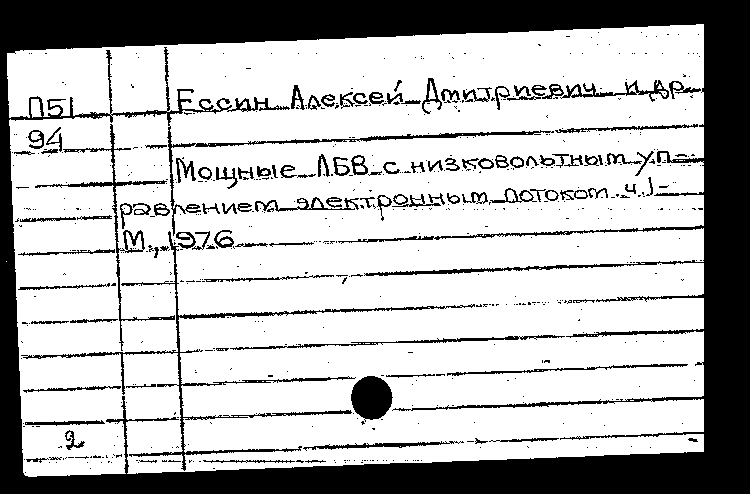 П51 Ессин Алексей Дмитриевич и др.
94
Мощные ЛБВ с низковольтным уп-
равлением электронным потоком. ч.1-
М., 1976
2